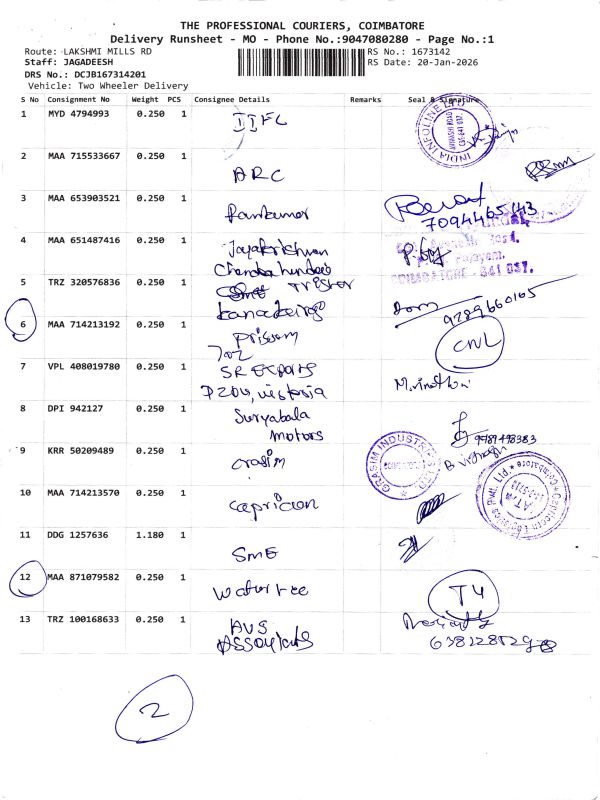 THE PROFESSIONAL COURIERS, COIMBATORE
Delivery Runsheet - MO - Phone No.:9047080280 - Page No.:1
Route: LAKSHMI MILLS RD
RS No.: 1673142
Staff: JAGADEESH
RS Date: 20-Jan-2026
DRS No.: DCJB167314201
Vehicle: Two Wheeler Delivery
S No Consignment No Weight PCS Consignee Details Remarks Seal & Signature
1 MYD 4794993 0.250 1 IIFL
INDIA INFOLINE LTD
2 MAA 715533667 0.250 1 ARC
3 MAA 653903521 0.250 1 Ramkumar
7094465143
4 MAA 651487416 0.250 1 Jayakrishnan
COIMBATORE - 641 037.
5 TRZ 320576836 0.250 1
9289660105
6 MAA 714213192 0.250 1 CNL
7 VPL 408019780 0.250 1 SR Exports
8 DPI 942127 0.250 1 Suryabala
motors
9 KRR 50209489 0.250 1 Grasim
GRASIM INDUSTRIES
10 MAA 714213570 0.250 1 Capricon
11 DDG 1257636 1.180 1 SME
12 MAA 871079582 0.250 1
13 TRZ 100168633 0.250 1 AVS
2